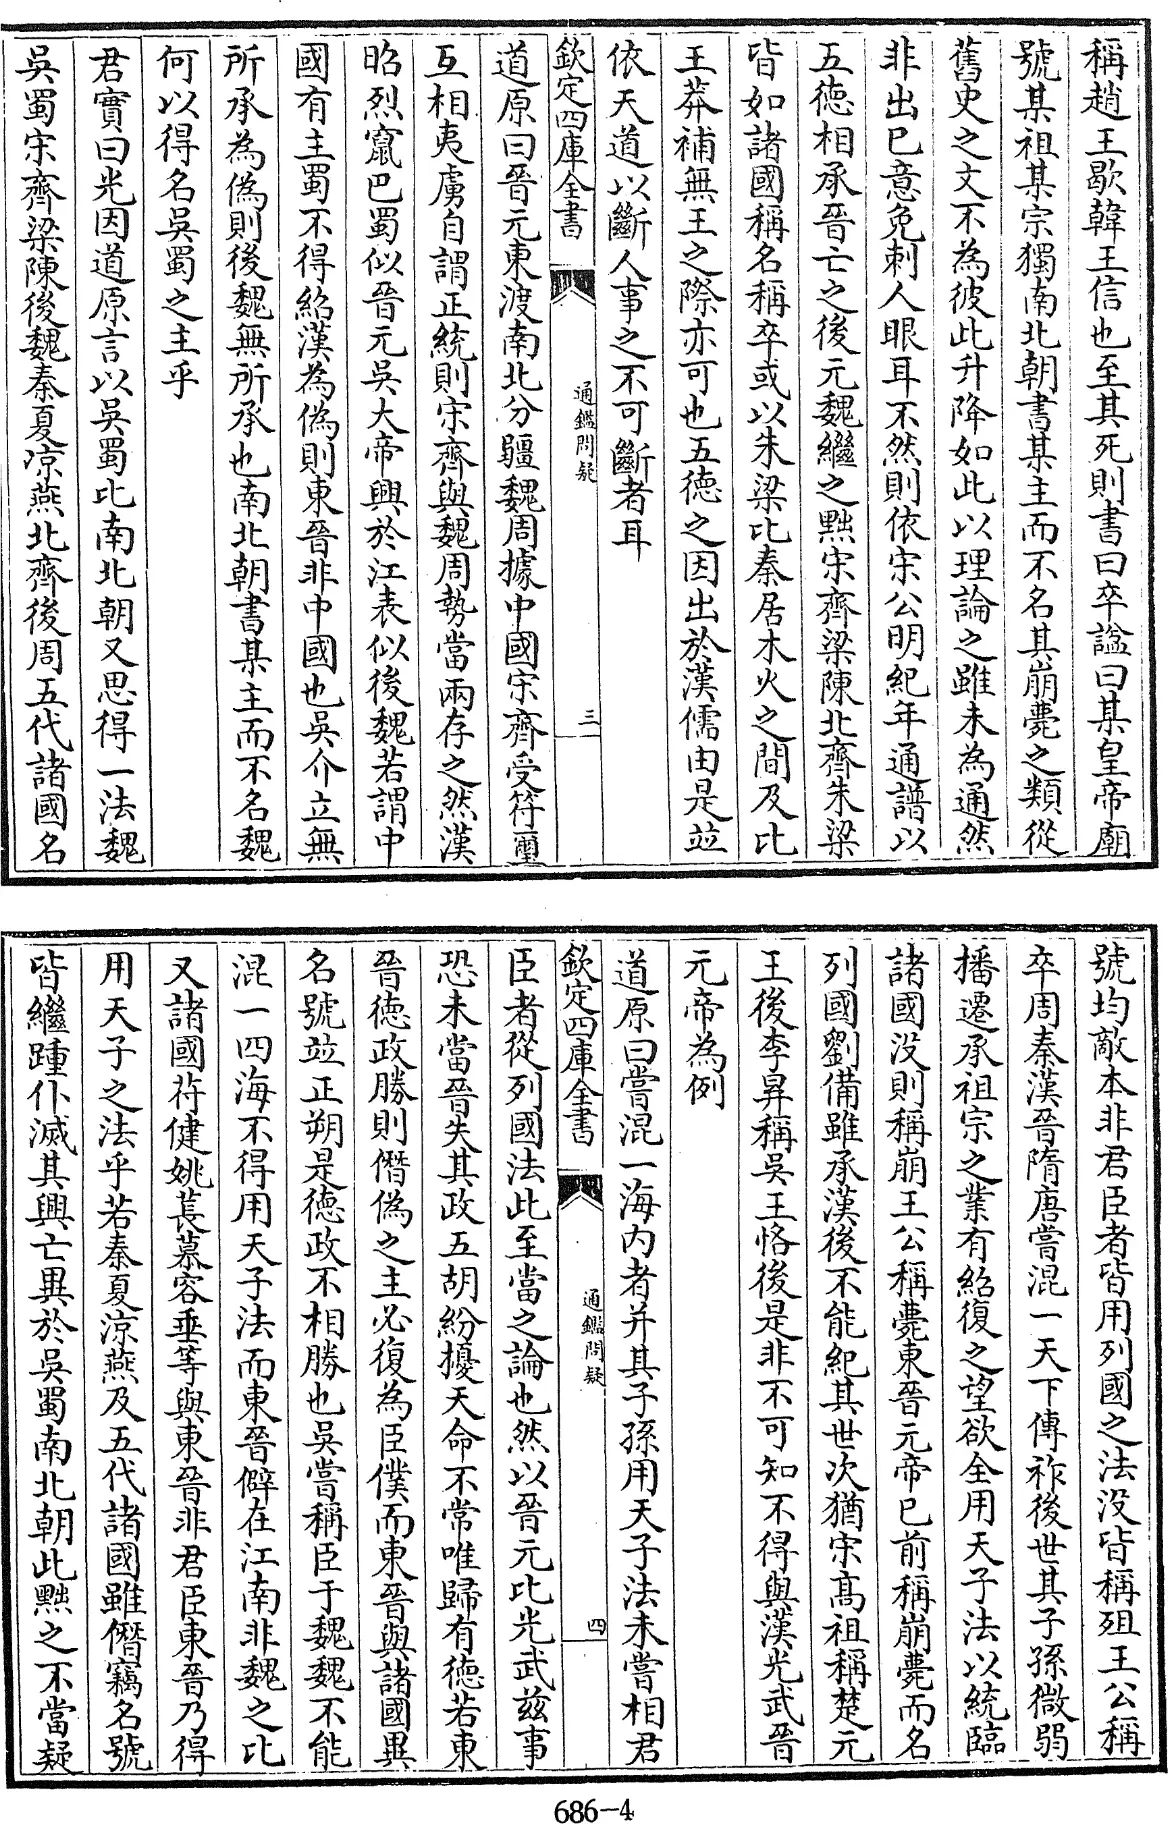 稱趙王歇韓王信也至其死則書曰卒諡曰某皇帝廟
號某祖某宗獨南北朝書某主而不名其崩薨之類從
舊史之文不為彼此升降如此以理論之雖未為通然
非出已意免刺人眼耳不然則依宋公明紀年通譜以
五德相承晉亡之後元魏繼之黜宋齊梁陳北齊朱梁
皆如諸國稱名稱卒或以朱梁比秦居木火之間及比
王莽補無王之際亦可也五德之因出於漢儒由是竝
依天道以斷人事之不可斷者耳
欽定四庫全書
通鑑問疑
三
道原曰晉元東渡南北分疆魏周據中國宋齊受符璽
互相夷虜自謂正統則宋齊與魏周勢當兩存之然漢
昭烈竄巴蜀似晉元吳大帝興於江表似後魏若謂中
國有主蜀不得紹漢為偽則東晉非中國也吳介立無
所承為偽則後魏無所承也南北朝書某主而不名魏
何以得名吳蜀之主乎
君實曰光因道原言以吳蜀比南北朝又思得一法魏
吳蜀宋齊梁陳後魏秦夏凉燕北齊後周五代諸國名
號均敵本非君臣者皆用列國之法没皆稱殂王公稱
卒周秦漢晉隋唐嘗混一天下傳祚後世其子孫微弱
播遷承祖宗之業有紹復之望欲全用天子法以統臨
諸國没則稱崩王公稱薨東晉元帝已前稱崩薨而名
列國劉備雖承漢後不能紀其世次猶宋髙祖稱楚元
王後李昇稱吳王恪後是非不可知不得與漢光武晉
元帝為例
道原曰嘗混一海内者并其子孫用天子法未嘗相君
欽定四庫全書
通鑑問疑
四
臣者從列國法此至當之論也然以晉元比光武兹事
恐未當晉失其政五胡紛擾天命不常唯歸有德若東
晉德政勝則僭偽之主必復為臣僕而東晉與諸國異
名號竝正朔是德政不相勝也吳嘗稱臣于魏魏不能
混一四海不得用天子法而東晉僻在江南非魏之比
又諸國苻健姚萇慕容垂等與東晉非君臣東晉乃得
用天子之法乎若秦夏凉燕及五代諸國雖僭竊名號
皆繼踵仆滅其興亡異於吳蜀南北朝此黜之不當疑
686-4